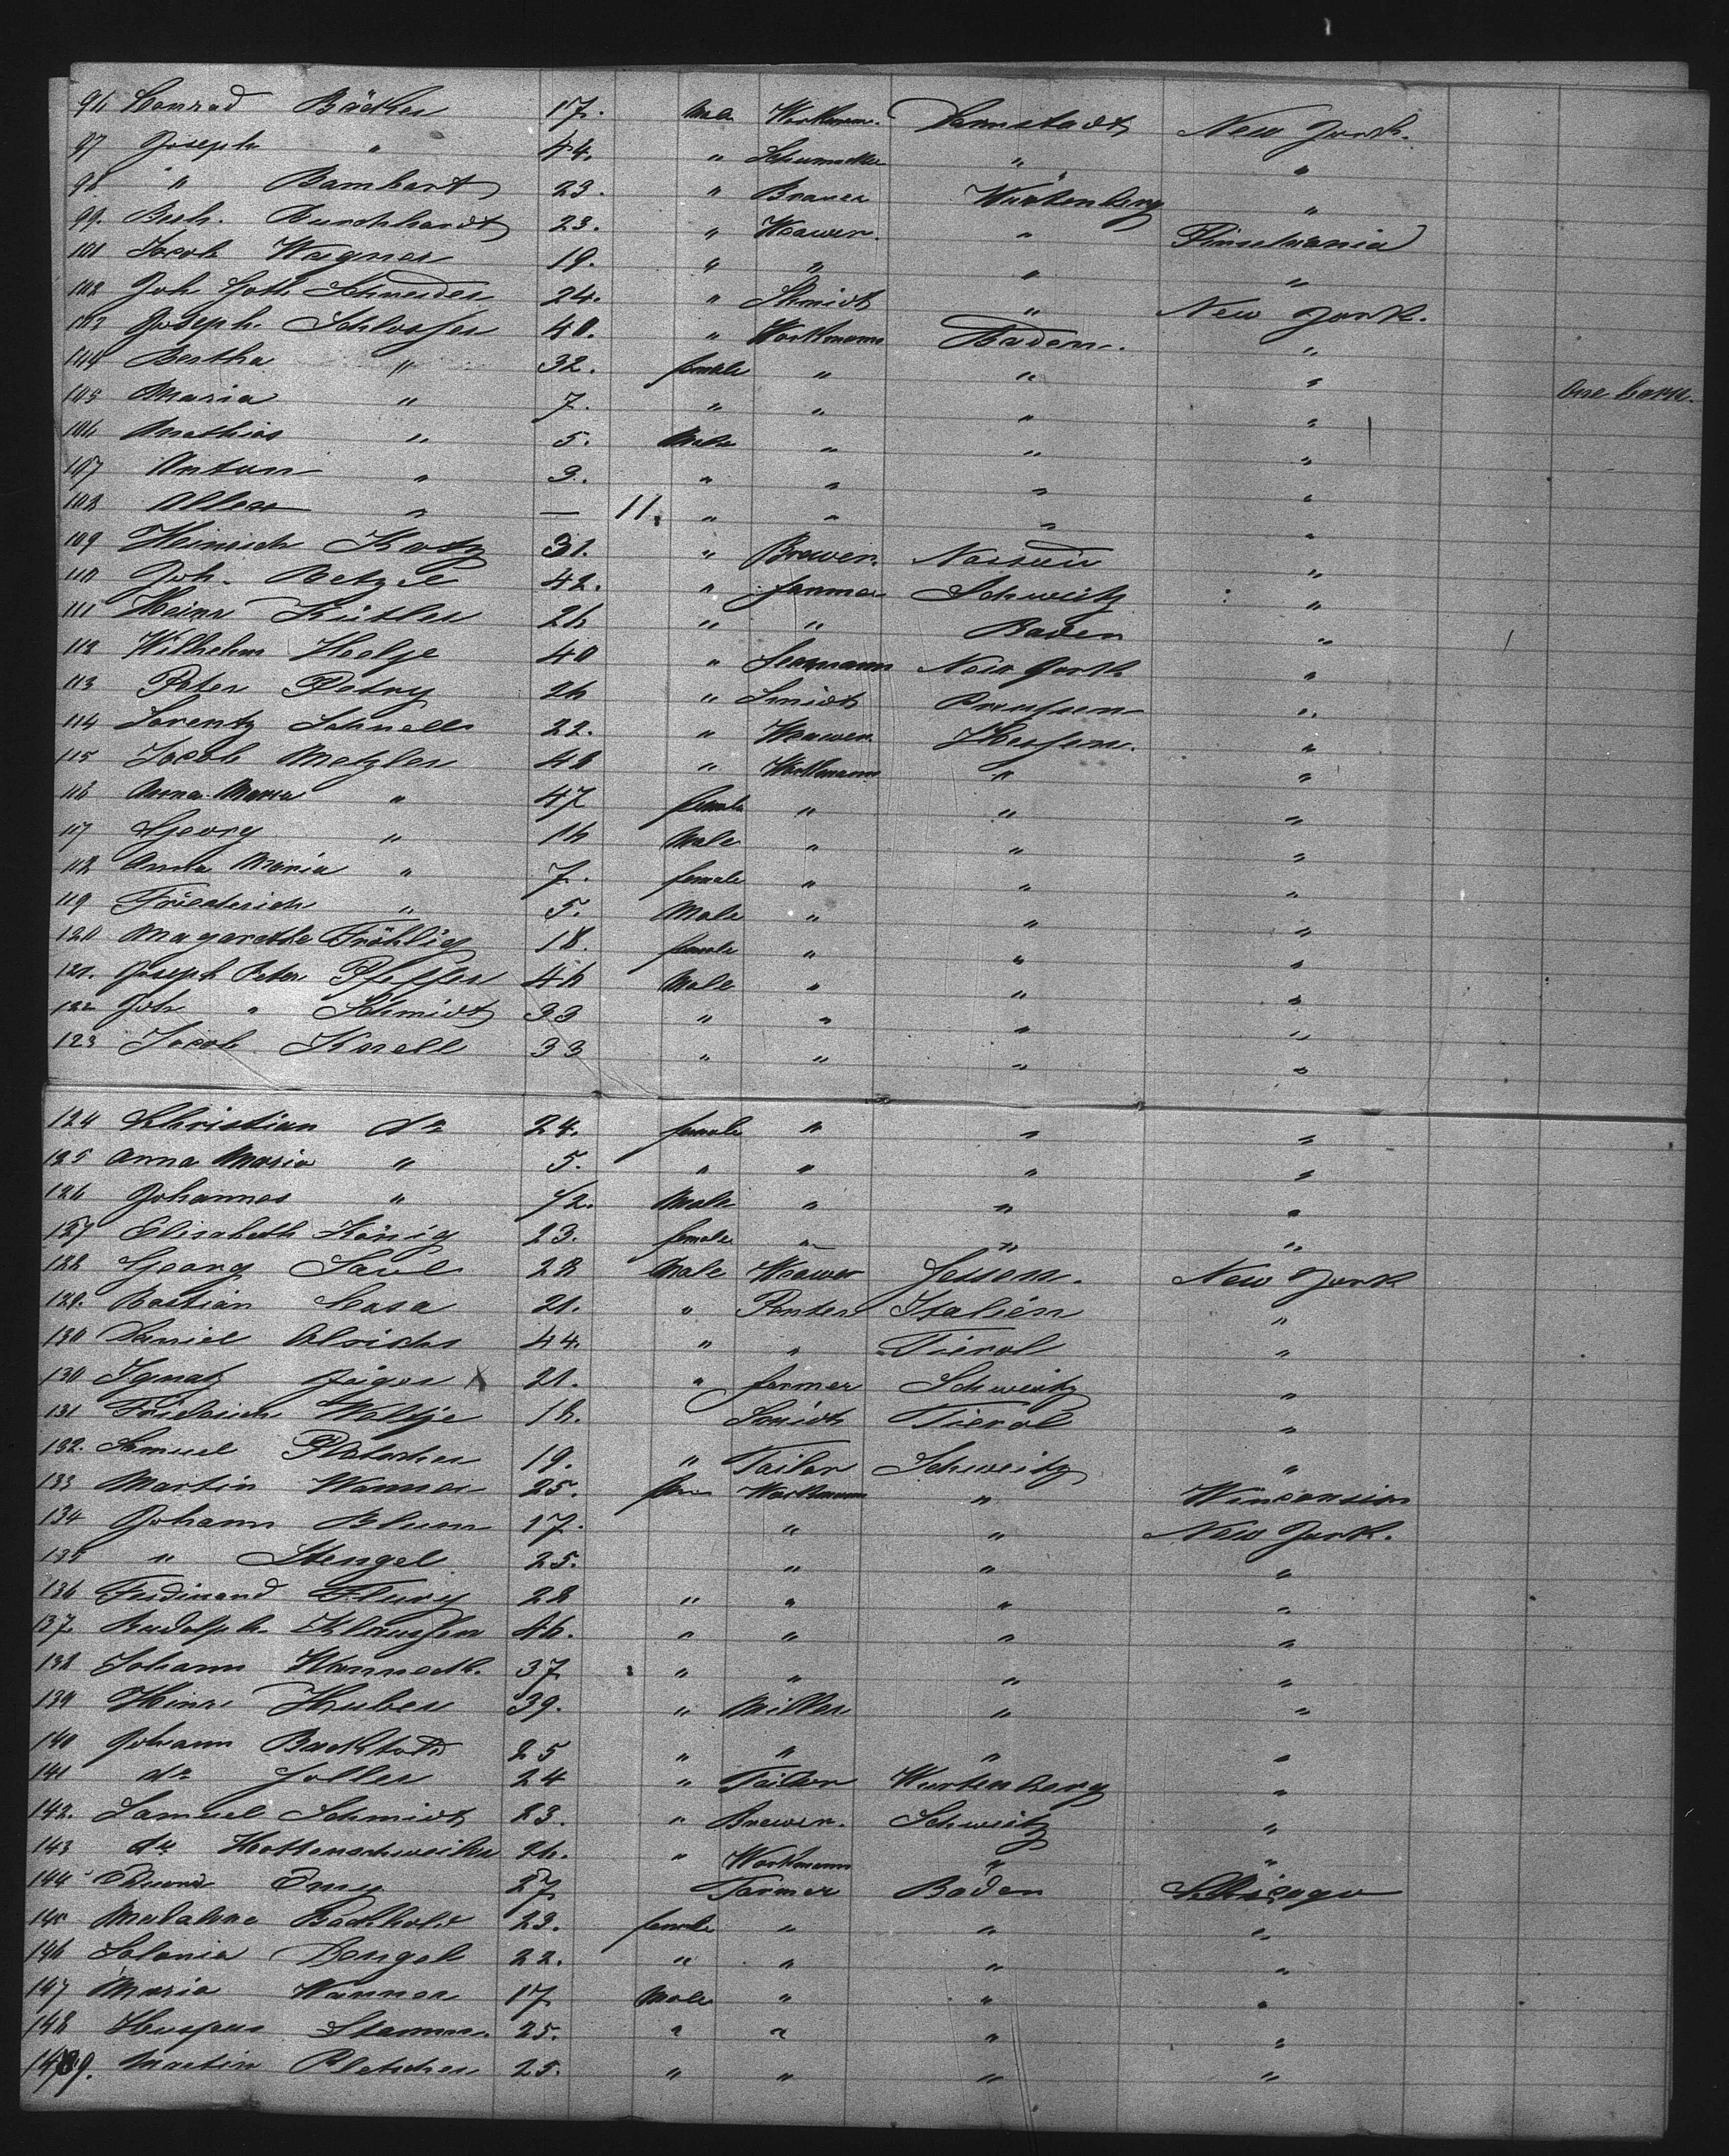 96 Conrad Bäcker 17. Male Workman. Darmstadt New Jork.
97 Joseph " 44. " Schumacher " "
98 " Bamhart 23. " Brauer Würtenberg "
99. Burkhardt 23. " Weawer. " Pinselvania
101 Jacob Wagner 19. " " " "
102 Joh Gottl Schneider 24. " Shmidt " New Jork.
103 Joseph. Schlosser 40. " Workmann Baden. "
104 Bertha " 32. female " " "
105 Maria " 7. " " " " One born.
106 Mathias " 5. Male " " "
107 Anton " 3. " " " "
108 " — 11. " " " "
109 Heinrich Katz 31. " Brewer. Nassau "
110 Joh. Metzel 42. " farmer Schweitz "
111 Heinr 26 " " Baden "
112 Wilhelm Helje 40 " Seemann New Jork "
113 Peter Petry 26 " Smidt Preussen "
114 Lorentz Schnell 22. " Weawer. Hessen. "
115 Jacob Metzler 48 " Workmann " "
116 Anna Maria " 47 female " " "
117 Georg " 16 Male " " "
118 Anna Maria " 7. female " " "
119 Friederich " 5. Male " " "
120 Magaretha Fröhlig 18. female " " "
121. Joseph Peter Pfeffer 46 Male " " "
122 Joh " Schmidt 33 " " " "
123 Jacob Knell 33 " " " "
124 Christian do 24. female " " "
125 Anna Maria " 5. " " " "
126 Johannes " /2. Male " " "
127 Elisabeth König 23. female " " "
128 Georg Saul 28 Male Weawer Hessen. New Jork
129. Bastian Casa 21. " Penter Italien "
130 Daniel 44. " " Tierol "
130 Ignatz Jäger X 21. " farmer Schweitz "
131 Friderich Woltje 18. Smidt Tierol "
132. Samuel Pletscher 19. " Tailor Schweitz "
133 Martin Wanner 25. Workmann " Winconsin
134 Johann Blum 17. " " New Jork.
135 " Stengel 25. " " "
136 Ferdinand Flury 28 " " " "
137 Rudolph Klaussen 46. " " " "
138 Johann 37 " " " "
139 Heinr Huber 39. " Miller " "
140 Johann Bachtold 25 " " " "
141 do Joller 24 " Tailor Wurtenberg "
142. Samuel Schmidt 23. " Brewer. Schweitz "
143 do Hottenschweiler 26. " Workmann " "
144 27 Farmer Baden Chicago
145 Madalene Bachhold 23. female " " "
146 Salonia Dengel 22. " " " "
147 Maria Wanner 17 Male " " "
148 Stamm. 25. " " " "
149. Martin Pletscher 25. " " " "